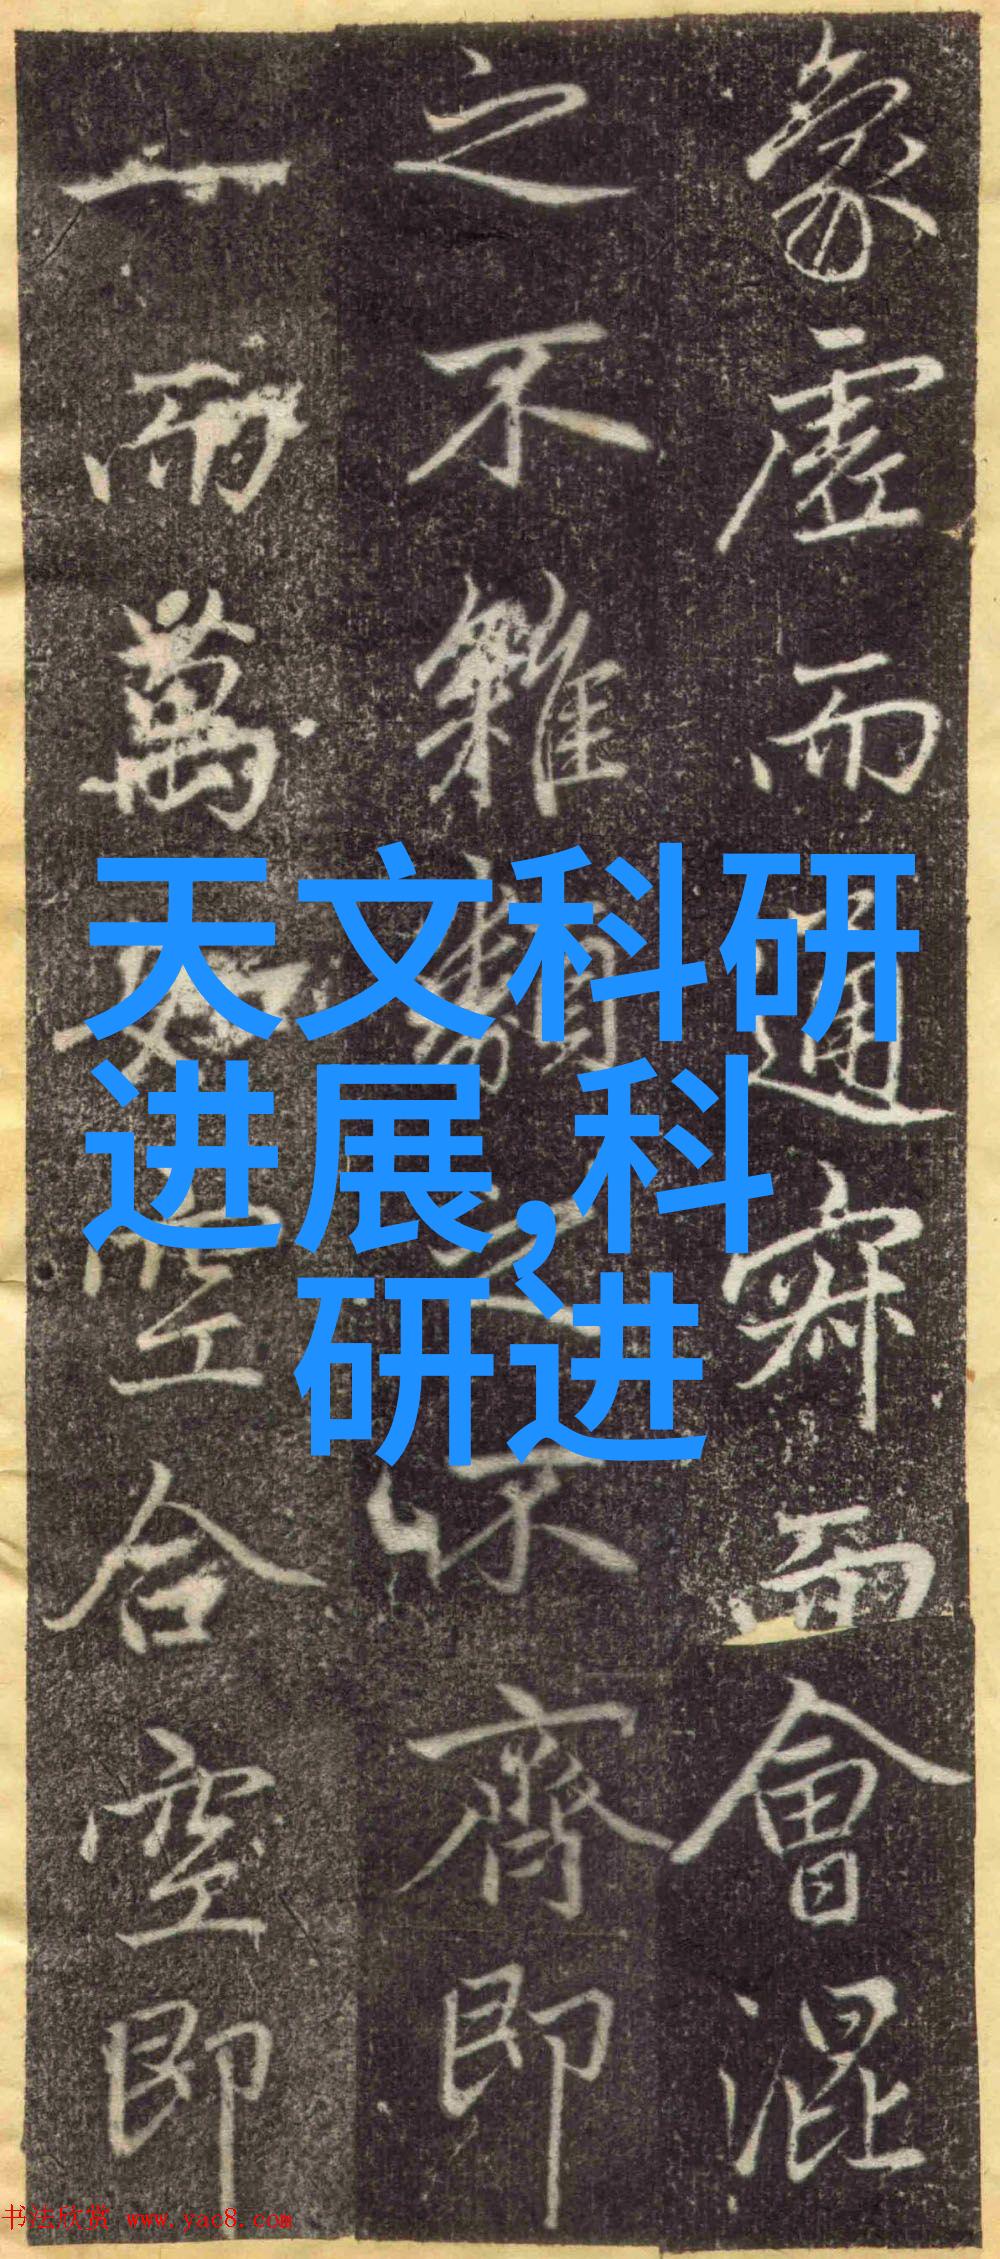 象虛而通寂而會混
之不雜類之不齊即
一而萬如空合空即
天文科研
进展,科
研进
书法欣赏 www.yac8.com